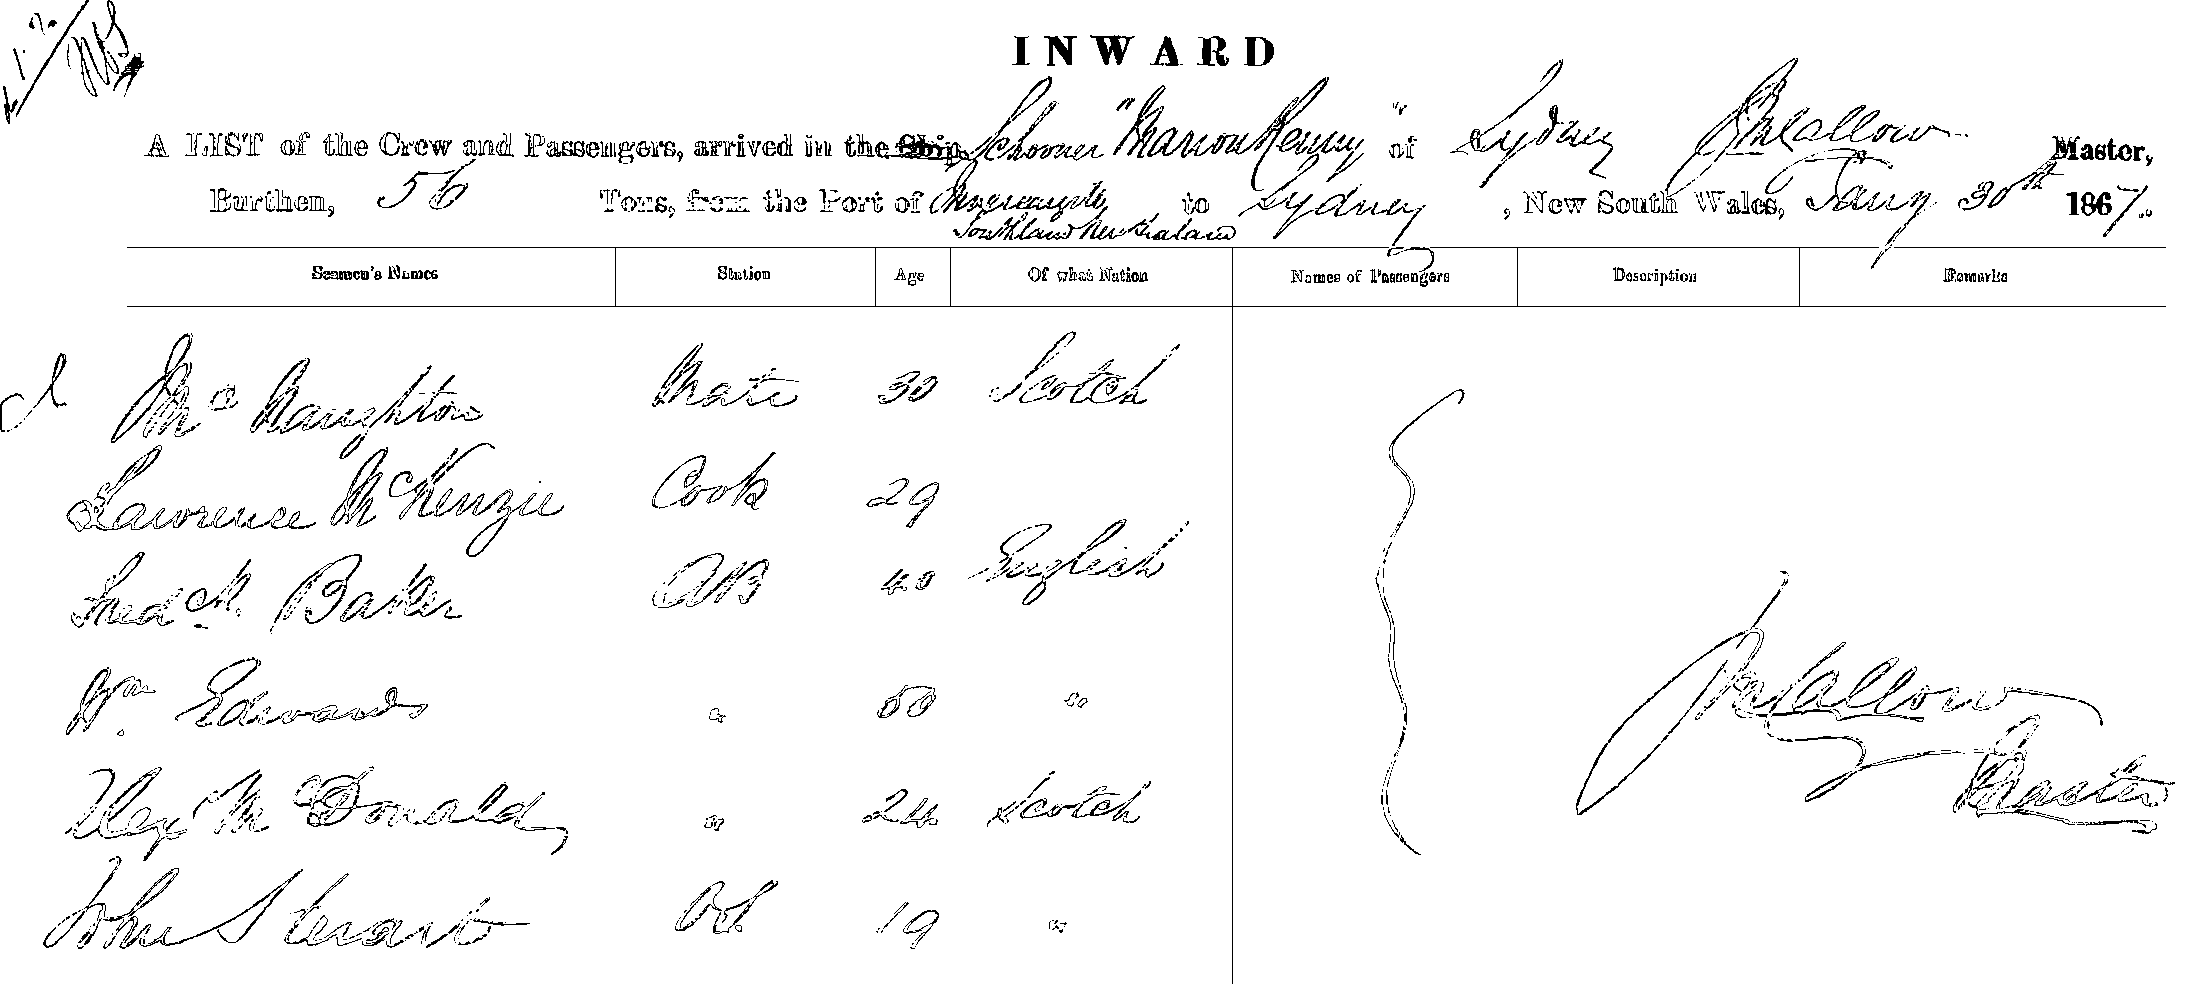 INWARD
A LIST of the Crew and Passengers, arrived in the Ship Schooner "Marion Renny" of Sydney Master,
Burthen, 56 Tons, from the Port of to Sydney, New South Wales, Jany 30th 1867.
Southland New Zealand
Seamen's Names Station Age Of what Nation Names of Passengers Description Remarks
Mc Naughton Mate 30 Scotch
Lawrence McKenzie Cook 29
Fredck. Baker AB 40 English
Wm. Edwards " 50 "
Alex McDonald " 24 Scotch
John Stewart OS 19 "
Master